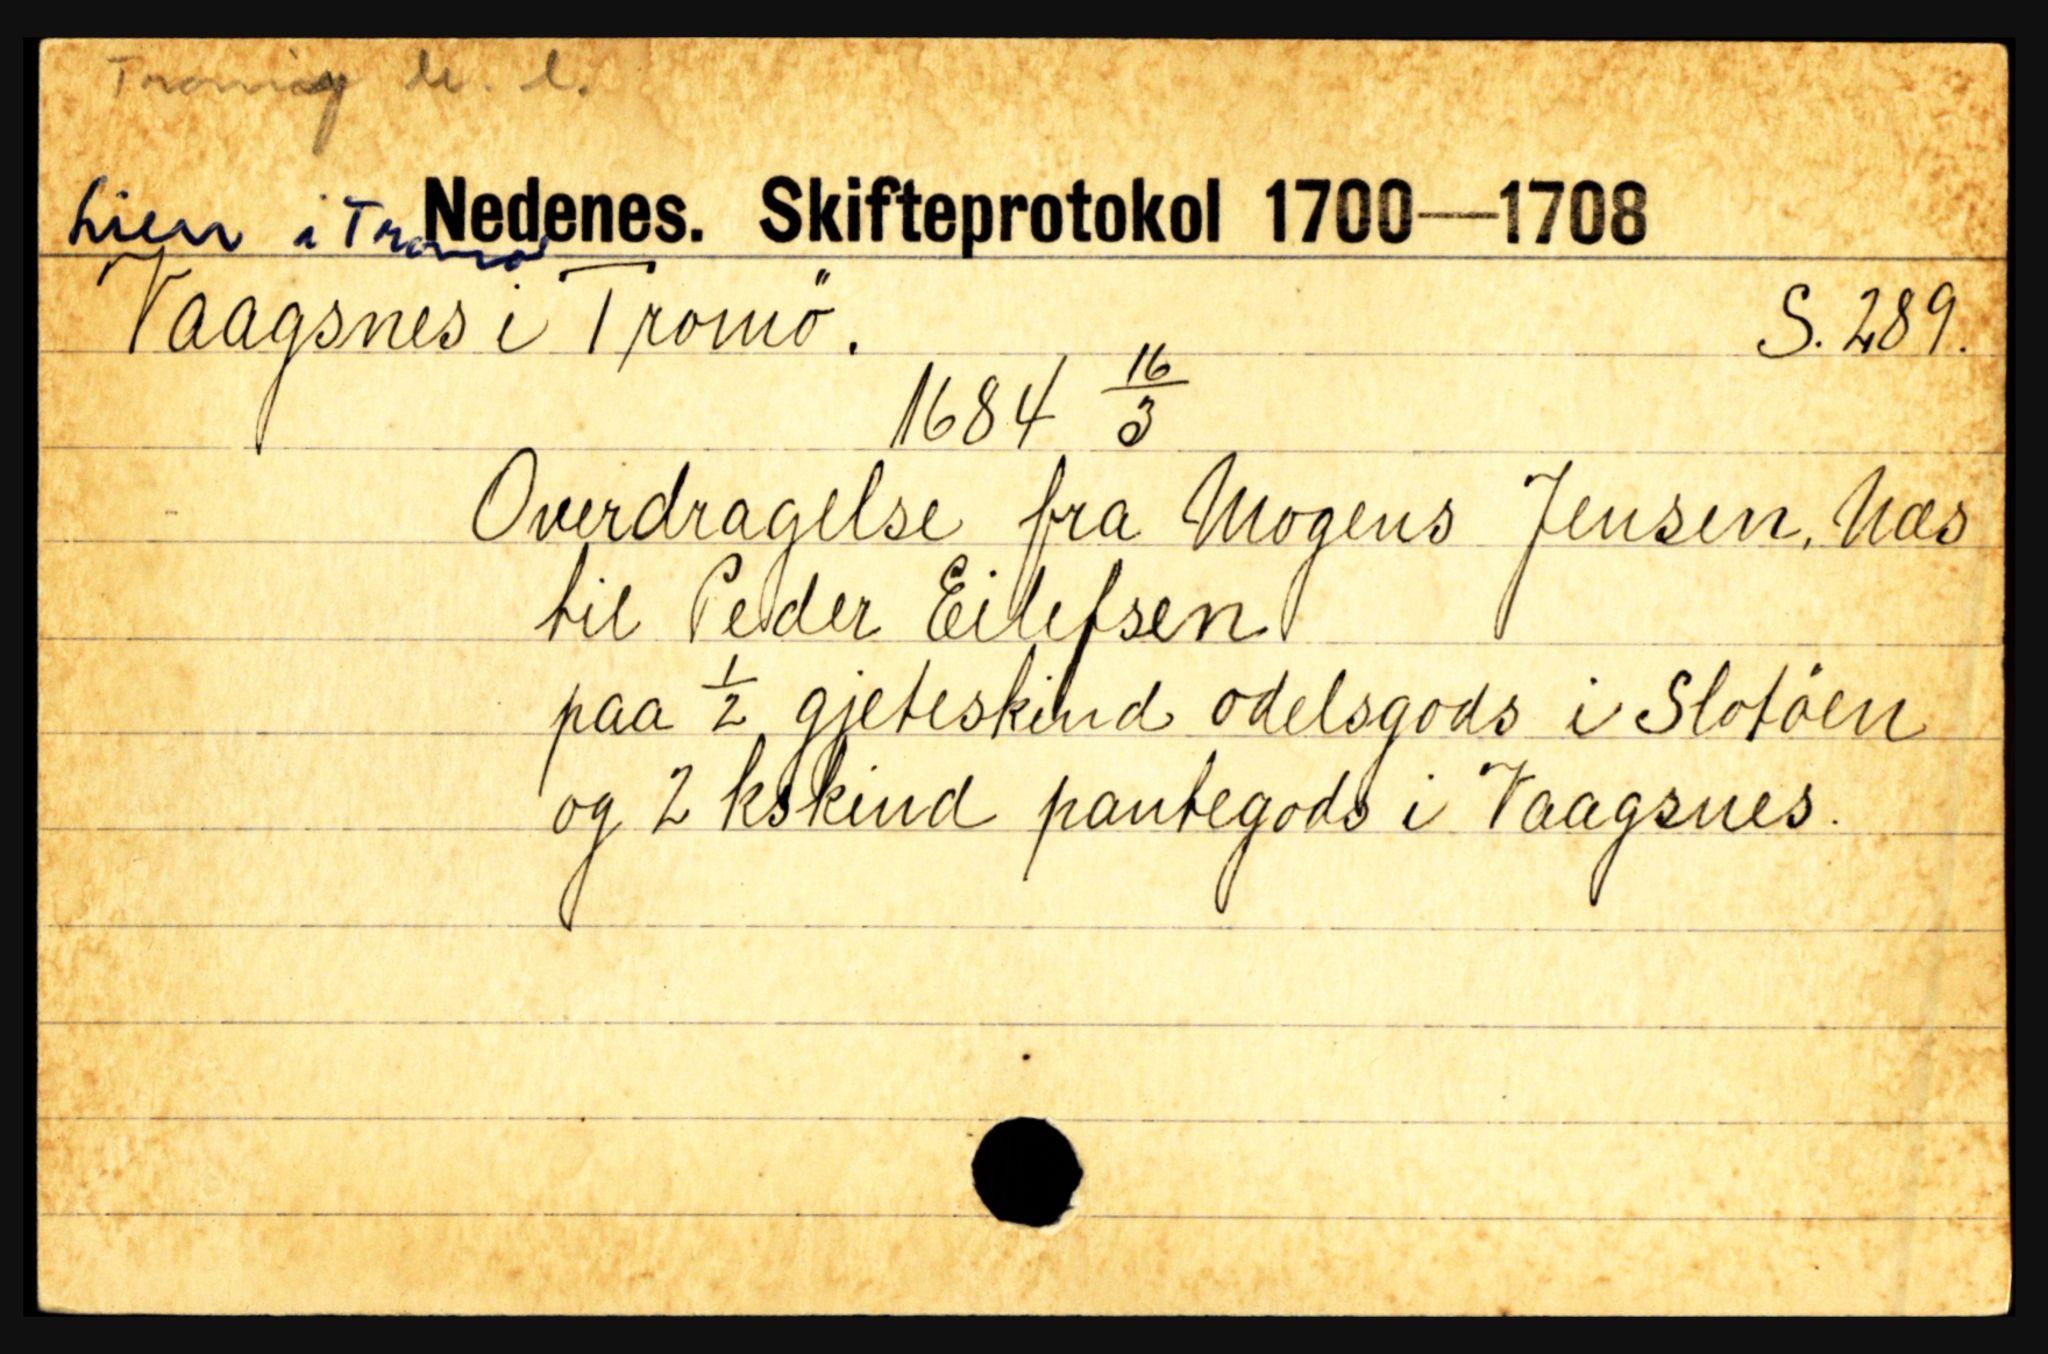 Tromøy
Nedenes. Skifteprotokol 1700—1708
Lien i Tromø
Vaagsnes i Tromö. S. 289.
1684 16/3
Overdragelse fra Mogens Jensen, Næs
til Peder Eilefsen
paa 1/2 gjeteskind odelsgods i Slotöen
og 2 kskind pantegods i Vaagsnes.